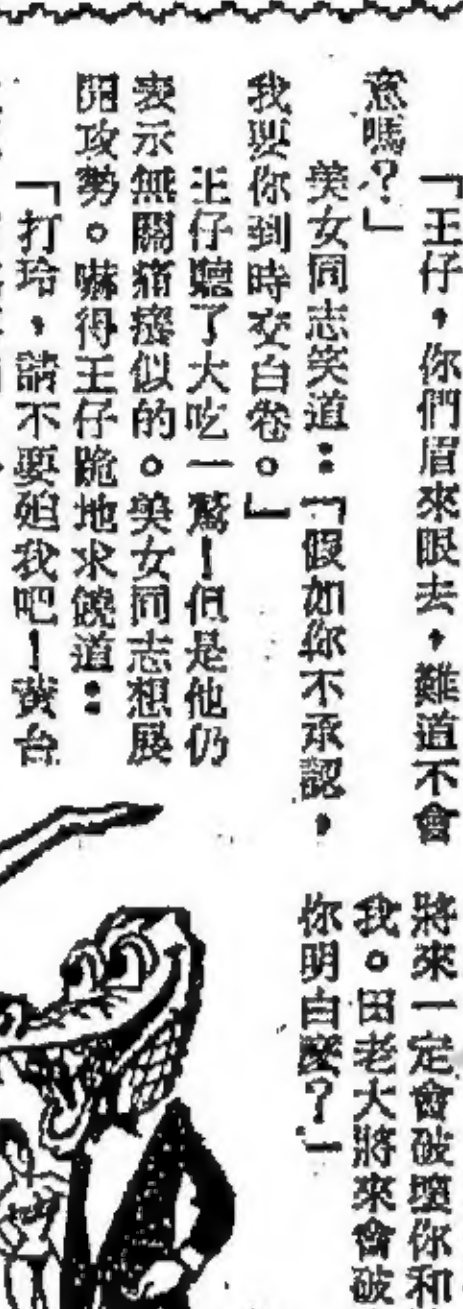 「王仔，你們眉來眼去，難道不會
意嗎？」
美女同志笑道：「假如你不承認，
我要你到時交白卷。」
王仔聽了大吃一驚！但是他仍
表示無關痛癢似的。美女同志想展
開攻勢。嚇得王仔跪地求饒道：
「打玲，請不要迫我吧！黃台
將來一定會破壞你和
我。田老大將來會破
你明白麼？」